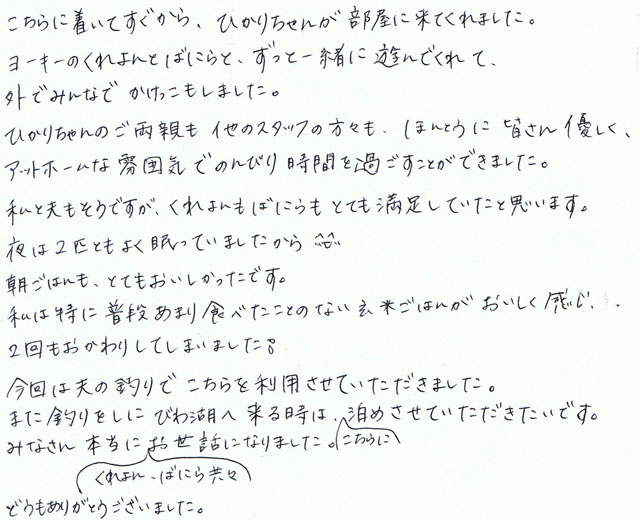 こちらに着いてすぐから、ひかりちゃんが部屋に来てくれました。
ヨーキーのくれよんとばにらと、ずっと一緒に遊んでくれて、
外でみんなでかけっこもしました。
ひかりちゃんのご両親も他のスタッフの方々も、ほんとうに皆さん優しく、
アットホームな雰囲気でのんびり時間を過ごすことができました。
私と夫もそうですが、くれよんもばにらもとても満足していたと思います。
夜は2匹ともよく眠っていましたから ^^
朝ごはんも、とてもおいしかったです。
私は特に普段あまり食べたことのない玄米ごはんがおいしく感じ、
2回もおかわりしてしまいました!
今回は夫の釣りでこちらを利用させていただきました。
また釣りをしにびわ湖へ来る時は、泊めさせていただきたいです。
みなさん本当にお世話になりました。
こちらに
くれよん、ばにら共々
どうもありがとうございました。